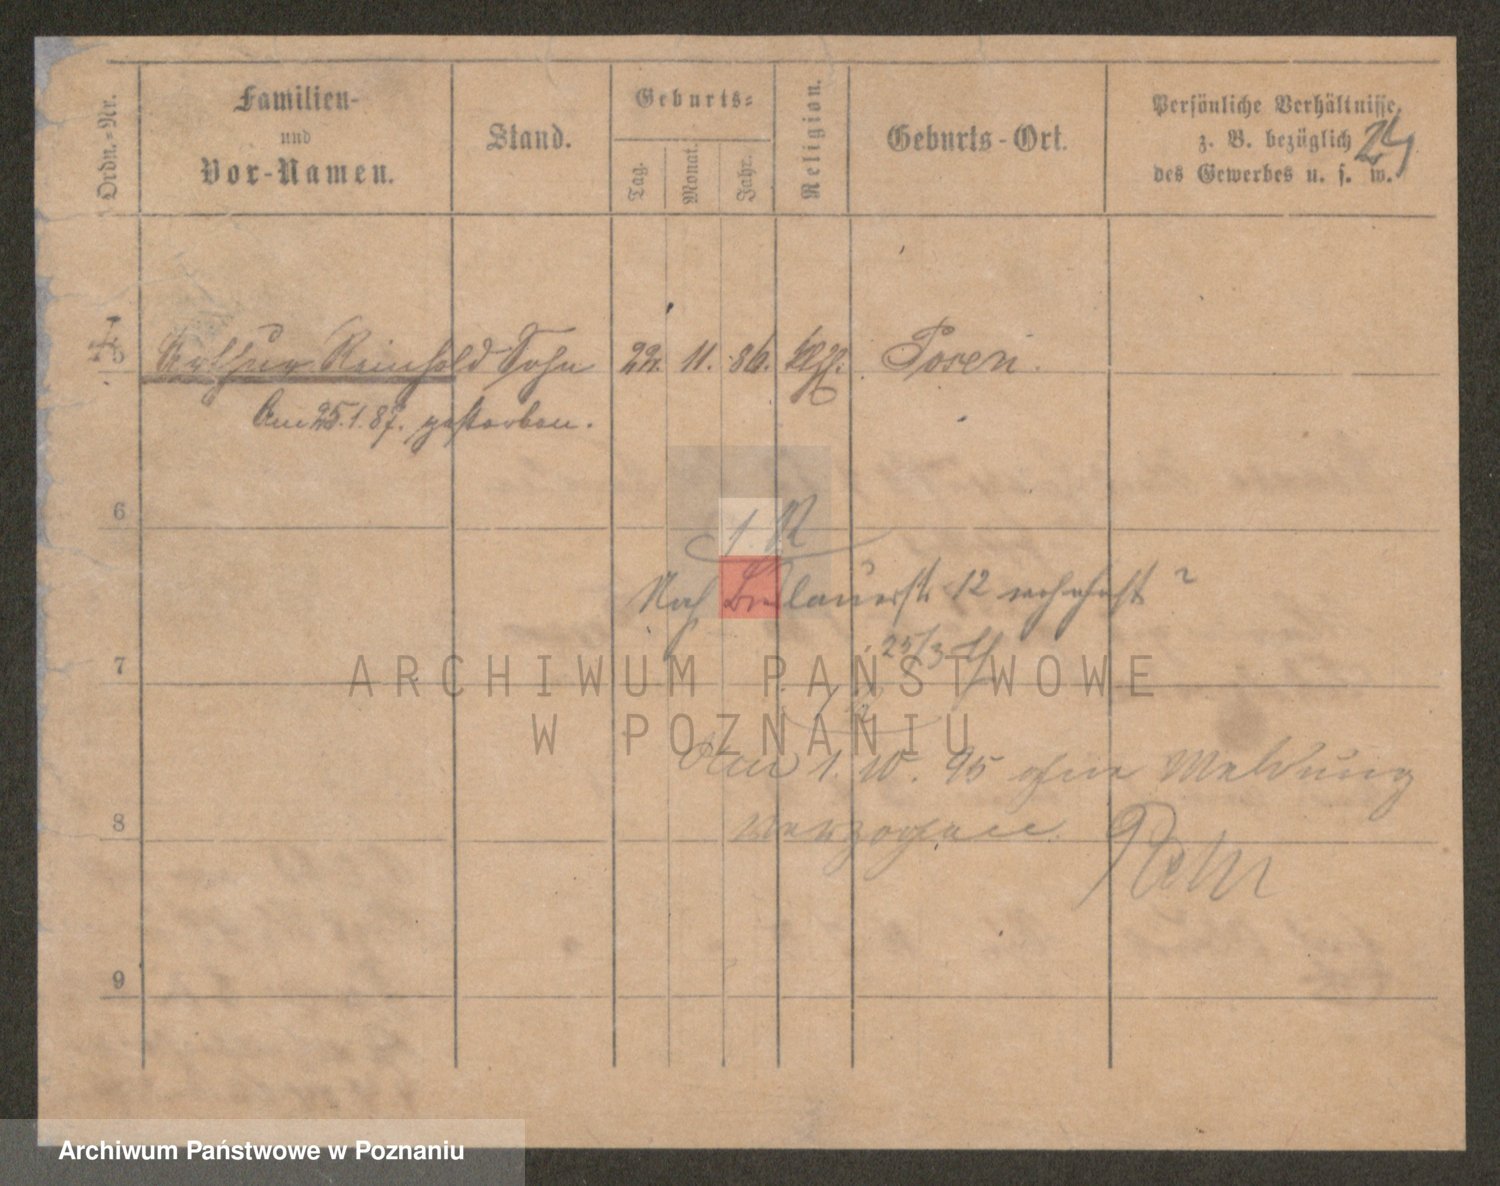 Ordn.-Nr.
Familien-
und
Vor-Namen.
Stand.
Geburts-
Tag.
Monat.
Jahr.
Religion.
Geburts-Ort.
Persönliche Verhältnisse,
z. B. bezüglich
des Gewerbes u. s. w.
24
5 Arthur Reinhold Sohn 22. 11. 86. Posen.
Am 25.1.87. gestorben.
6
Noch Breslauerstr 12 wohnhaft?
25/3
7
ARCHIWUM PAŃSTWOWE
W POZNANIU
Am 1. 10. 95 ohne Meldung
verzogen.
8
9
Archiwum Państwowe w Poznaniu